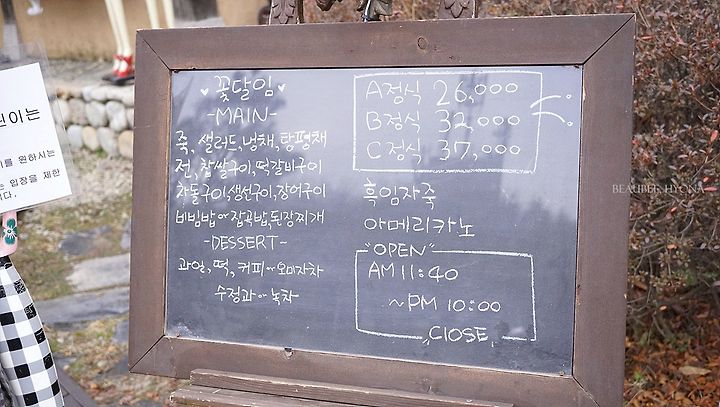 꽃달임
-MAIN-
죽, 샐러드, 냉채, 탕평채
전, 찹쌀구이, 떡갈비구이
자돌구이, 생선구이, 장어구이
비빔밥~잡곡밥, 된장찌개
-DESSERT-
과일, 떡, 커피~오미자차
수정과~녹차
A정식 26,000
B정식 32,000
C정식 37,000
흑임자죽
아메리카노
"OPEN"
AM 11:40
~PM 10:00
CLOSE
린이는
를 원하시는
는 입장을 제한
니다.